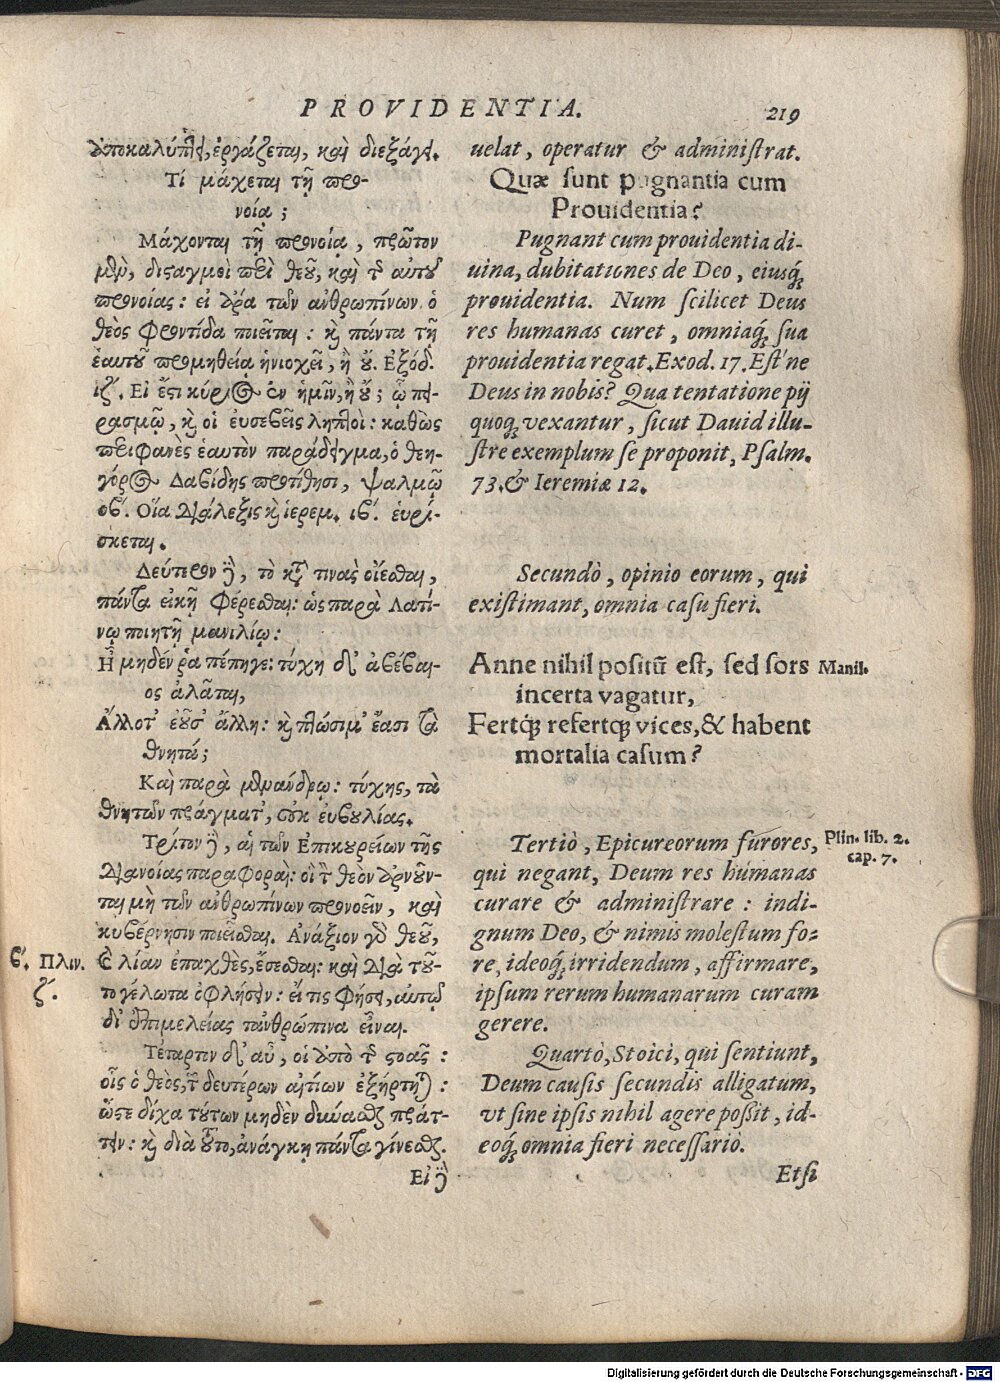 PROVIDENTIA. 219
ἀποκαλύπτει, ἐργάζεται, καὶ διεξάγει.
Τί μάχεται τῇ προ-
νοίᾳ ;
Μάχονται τῇ προνοίᾳ , πρῶτον
μὲν, δισαγμοὶ περὶ θεοῦ, καὶ τῆς αὐτοῦ
προνοίας : εἰ ἄρα τῶν ἀνθρωπίνων ὁ
θεὸς φροντίδα ποιεῖται : καὶ πάντα τῇ
ἑαυτοῦ προμηθείᾳ ἡνιοχεῖ , ἢ οὔ. Ἐξόδ.
ιζʹ. Εἰ ἔστι κύριος ἐν ἡμῖν, ἢ οὔ ; ᾧ πει-
ρασμῷ, καὶ οἱ εὐσεβεῖς ληπτοὶ : καθὼς
περιφανὲς ἑαυτὸν παράδειγμα, ὁ θεη-
γόρος Δαβίδης προτίθησι , ψαλμῷ
οβʹ. Οἵα διάλεξις καὶ ἱερεμ. ιβʹ. εὑρί-
σκεται.
Δεύτερον δὲ, τὸ κατὰ τινὰς οἴεσθαι ,
πάντα εἰκῇ φέρεσθαι: ὡς παρὰ Λατί-
νῳ ποιητῇ μανιλίῳ :
Ἢ μηδέν ῥα πέπηγε : τύχη δʼ ἀβέβαι-
ος ἀλᾶται,
Ἄλλοτʼ ἐοῦσʼ ἄλλη : καὶ πλώσιμʼ ἔασι τὰ
θνητά ;
Καὶ παρὰ μενάνδρῳ : τύχης, τὰ
θνητῶν πράγματʼ, οὐκ εὐβουλίας.
Τρίτον δὲ, αἱ τῶν Ἐπικουρείων τῆς
διανοίας παραφοραὶ : οἳ τὸν θεὸν ἀρνοῦν-
ται μὴ τῶν ἀνθρωπίνων προνοεῖν , καὶ
κυβέρνησιν ποιεῖσθαι. Ἀνάξιον γὰρ θεοῦ,
βʹ. Πλιν. καὶ λίαν ἐπαχθὲς, ἔσεσθαι : καὶ διὰ τοῦ-
ζʹ. το γέλωτα ὀφλήσειν : εἴ τις φήσει, αὐτῷ
διʼ ἐπιμελείας τἀνθρώπινα εἶναι.
Τέταρτον δʼ αὖ , οἱ ἀπὸ τῆς στοᾶς :
οἷς ὁ θεὸς, τῶν δευτέρων αἰτίων ἐξήρτηται :
ὥστε δίχα τούτων μηδὲν δύνασθαι πράτ-
τειν : καὶ διὰ τοῦτο, ἀνάγκῃ πάντα γίνεσθαι.
Εἰ δὲ
uelat , operatur & administrat.
Quæ sunt pugnantia cum
Prouidentia?
Pugnant cum prouidentia di-
uina, dubitationes de Deo , eiusq́;
prouidentia. Num scilicet Deus
res humanas curet , omniaq́; sua
prouidentia regat. Exod. 17. Est ne
Deus in nobis? Qua tentatione pij
quoq; vexantur , sicut Dauid illu-
stre exemplum se proponit, Psalm.
73. & Ieremiæ 12.
Secundò , opinio eorum , qui
existimant, omnia casu fieri.
Anne nihil positũ est, sed sors Manil.
incerta vagatur,
Fertq́; refertq; vices, & habent
mortalia casum?
Tertiò , Epicureorum furores, Plin. lib. 2.
cap. 7.
qui negant, Deum res humanas
curare & administrare : indi-
gnum Deo, & nimis molestum fo-
re, ideoq́; irridendum , affirmare,
ipsum rerum humanarum curam
gerere.
Quartò, Stoici, qui sentiunt,
Deum causis secundis alligatum,
vt sine ipsis nihil agere possit , id-
eoq́; omnia fieri necessariò.
Etsi
Digitalisierung gefördert durch die Deutsche Forschungsgemeinschaft - DFG